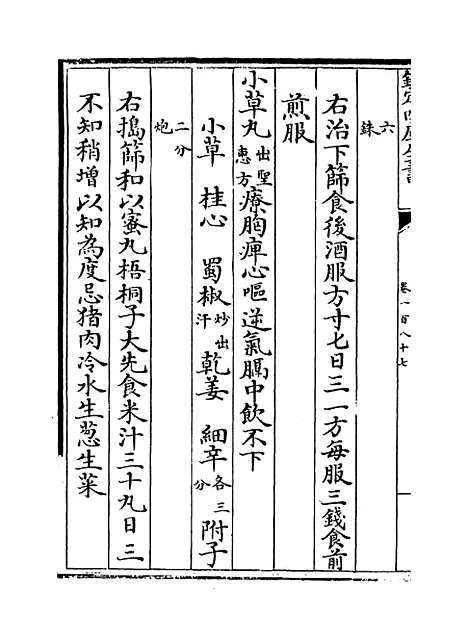 欽定四庫全書
卷一百八十七
六
銖
右治下篩食後酒服方寸匕日三一方每服三錢食前
煎服
小草丸出聖惠方療胸痺心嘔逆氣膈中飲不下
小草 桂心 蜀椒炒出汗 乾姜 細辛各三分 附子
二分炮
右搗篩和以蜜丸梧桐子大先食米汁三十丸日三
不知稍增以知為度忌猪肉冷水生葱生菜